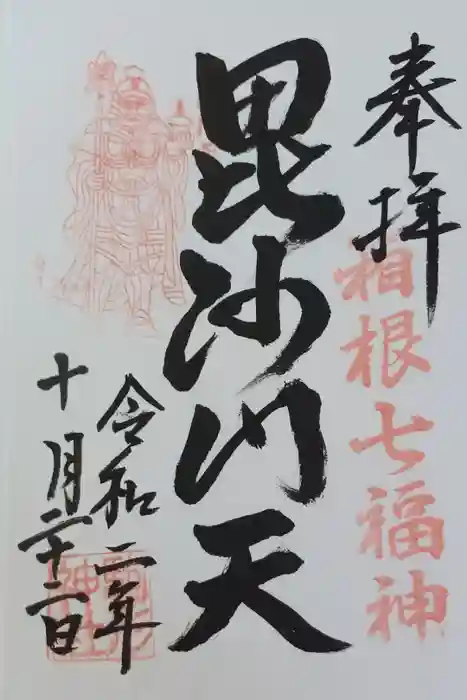 奉拝
箱根七福神
毘沙門天
令和二年
十月二十二日
駒形
神社